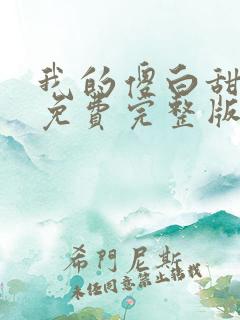 我的傻白甜
免費完整版
希門尼斯
未经同意禁止转载